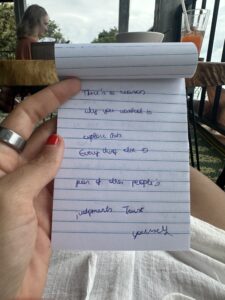 There's a reason
why you wanted to
explore this
Everything else is
pain of other people's
judgments Trust
yourself